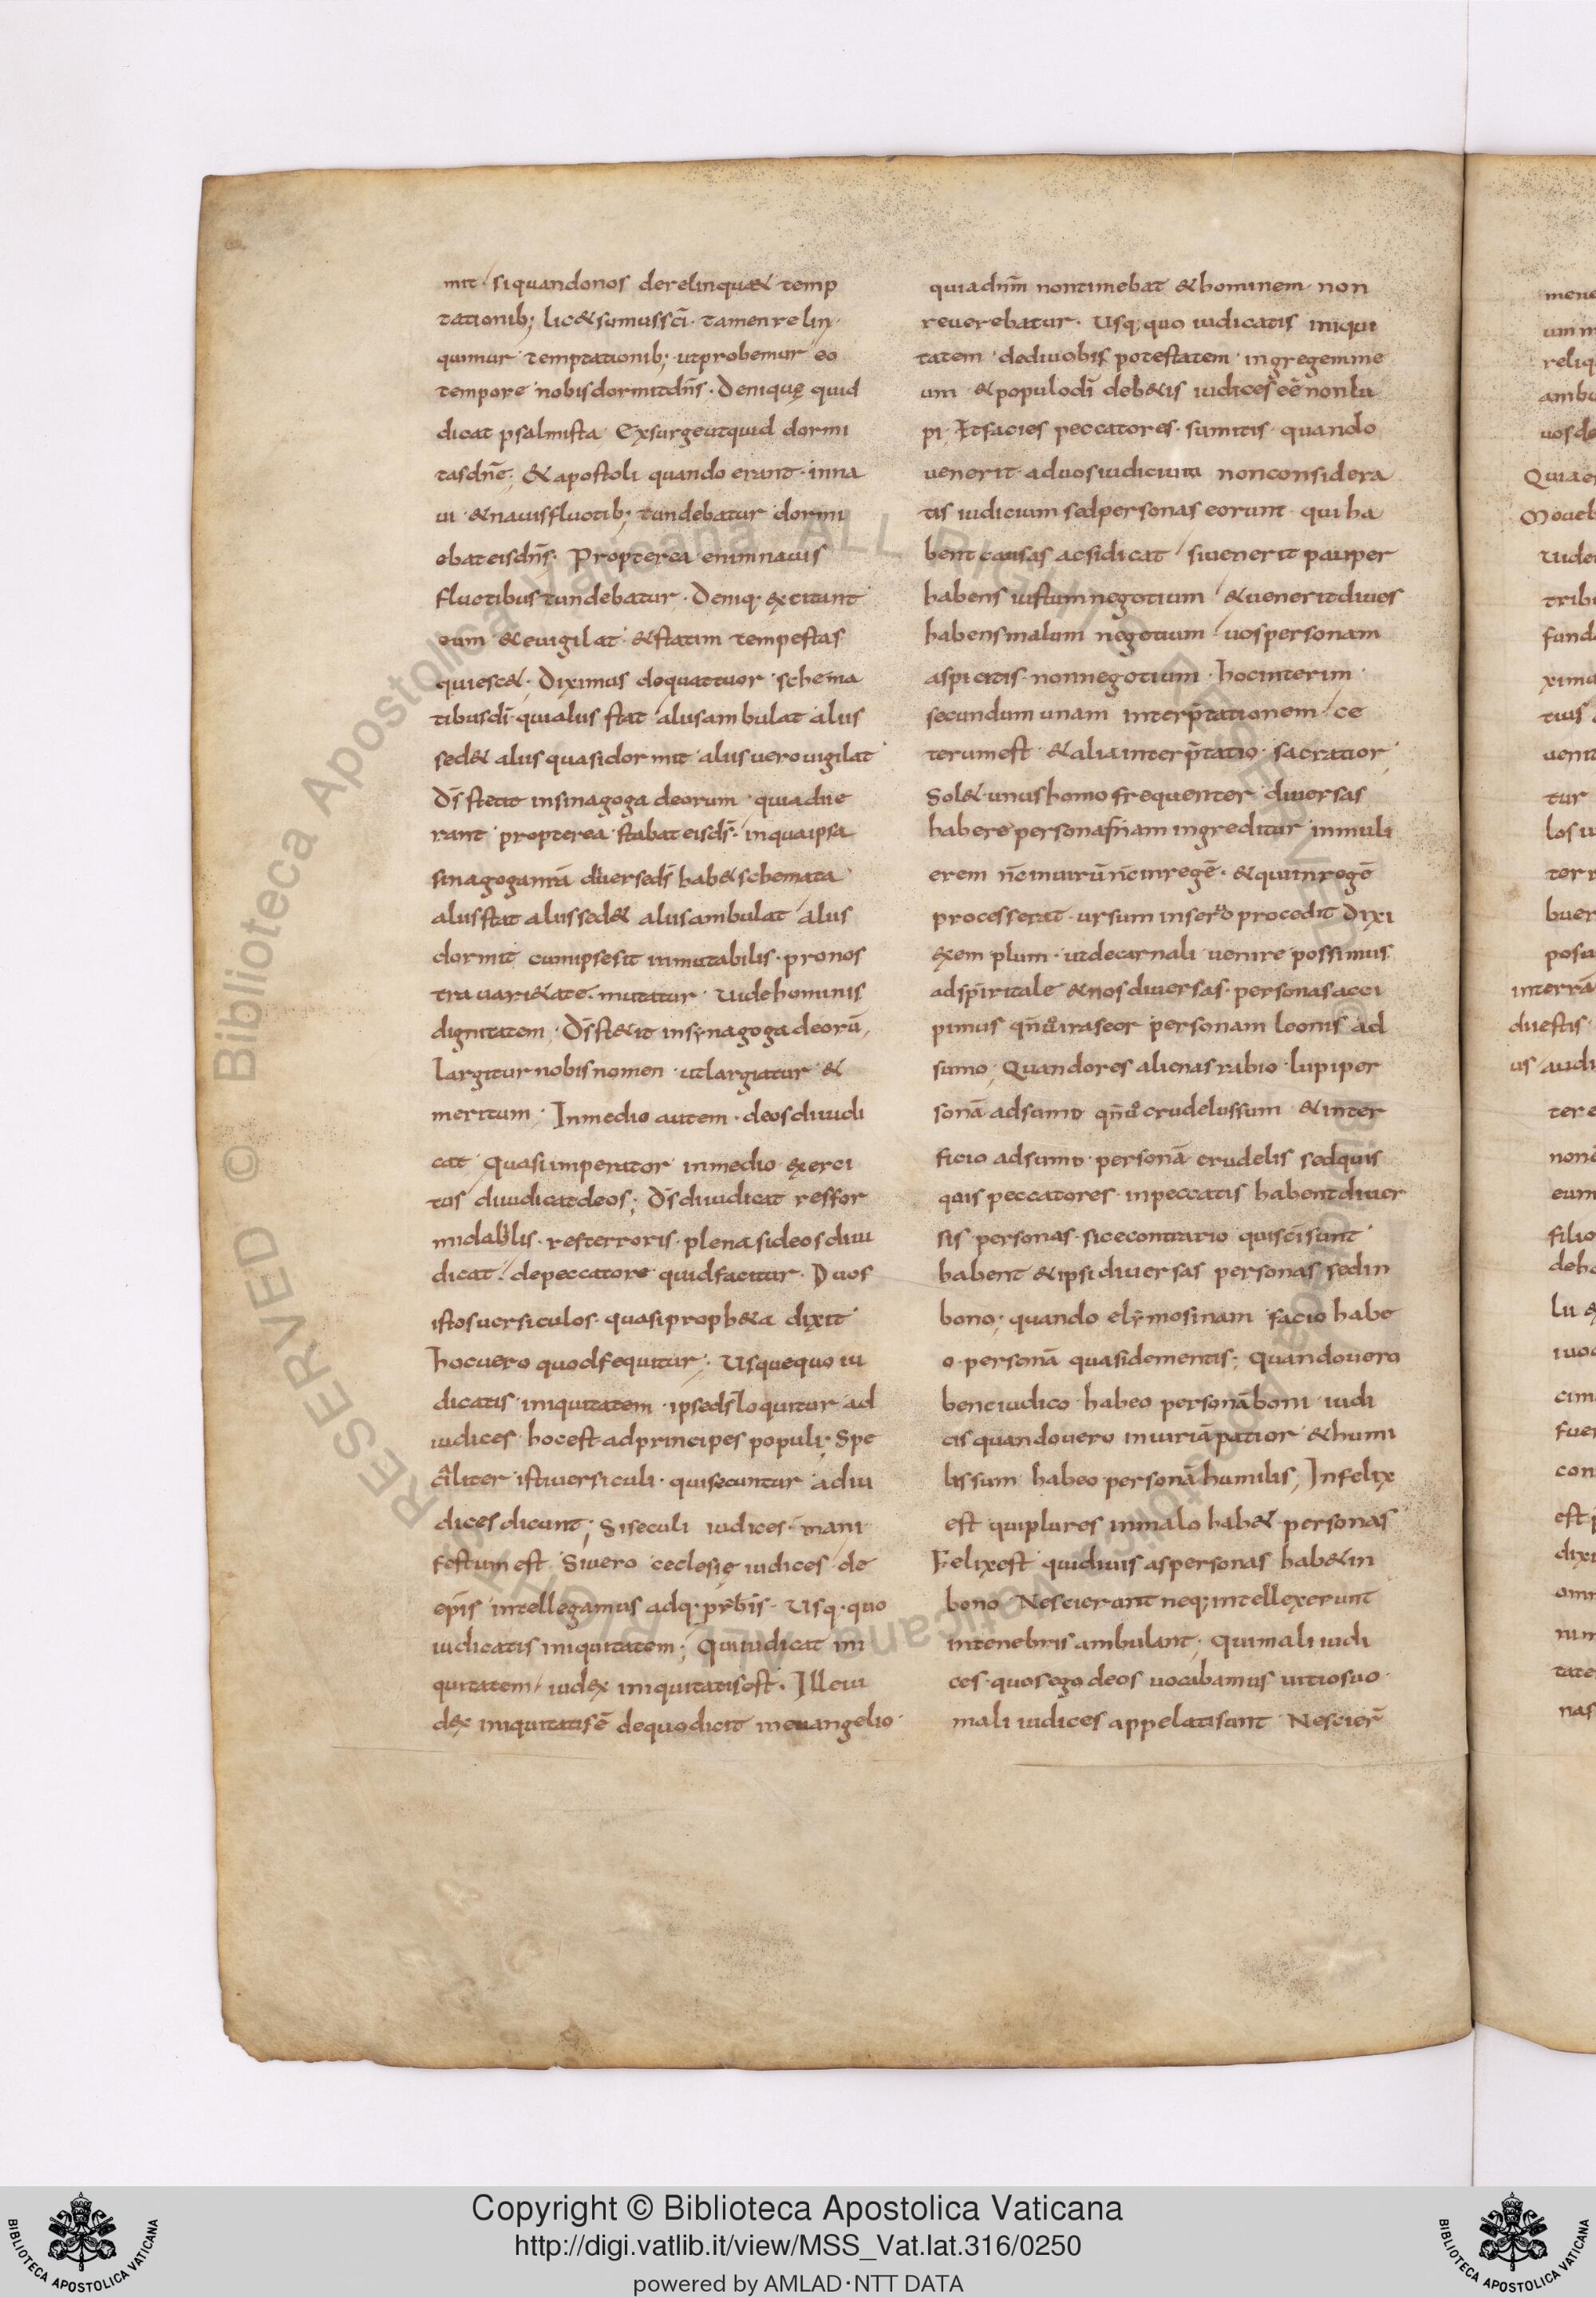 mit· si quandonos derelinqu& temp
tationib; lic& sumus sc̄i· tamen relin
quimur temptationib; ut probemur eo
tempore nobis dormit dn̄s· Deniquę quid
dicat psalmista Exsurge utquid dormi
tas dn̄e; & apostoli quando erant· inna
ui & nauis fluctib; tundebatur dormi
ebat eis dn̄s· Propterea enim nauis
fluctibus tundebatur· Deniq· excitant
eum & euigilat· & statim tempestas
quiesc&· Diximus de quattuor schema
tibus dī· qui alius stat alius ambulat alius
sed& alius quasi dormit alius uero uigilat
Ds̄ stetit in sinagoga deorum· quia due
rant propterea stabat eis ds̄· in qua ipsa
sinagoga
alius stat alius sed& alius ambulat alius
dormit cum ipse sit inmutabilis· pro nos
tra uari&ate· mutatur· Uide hominis
dignitatem· Ds̄ st&it in synagoga deorū,
Largitur nobis nomen· ut largiatur &
meritum; In medio autem· deos diiudi
cat Quasi imperator in medio exerci
tus diiudicat deos; Ds̄ diiudicat res for
midabilis· res terroris· plena si deos diiu
dicat· de peccatore quid facitur· Duos
istos uersiculos· quasi proph&a dixit
hoc uero quod sequitur; Usquequo iu
dicatis iniquitatem· ipse ds̄ loquitur ad
iudices hoc est ad principes populi; Spe
cīaliter isti uersiculi· qui secuntur ad iu
dices dicunt; Si seculi iudices· mani
festum est Si uero ęcclesię iudices de
ep̄is intellegamus adq· prb̄is· Usq· quo
iudicatis iniquitatem; Qui iudicat ini
quitatem· iudex iniquitatis est· Ille iu
dex iniquitatis ē de quo dicit in euangelio·
quia dn̄m non timebat & hominem non
reuerebatur· Usq; quo iudicatis iniqui
tatem dedi uobis potestatem in gregem me
um & populo dī deb&is iudices eē non lu
pi Et facies peccatores· sumitis quando
uenerit ad uos iudicium non considera
tis iudicium sed personas eorum qui ha
bent causas ac si dicat si uenerit pauper
habens iustum negotium & uenerit diues
habens malum negotium uos personam
aspicitis· non negotium· hoc interim
secundum unam interp̄tationem ce
terum est & alia interp̄tatio· sacratior
Sol& unus homo frequenter diuersas
habere personas nam ingreditur in muli
erem nc̄ in uirū nc̄ in regē· & qui in regē
processerat· ursum in seruo procedit Dixi
exemplum· ut de carnali uenire possimus
ad sp̄iritale & nos diuersas· personas acci
pimus qn̄do irascor personam leonis ad
sumo; Quando res alienas rabio· lupi per
sonā adsumo qn̄do crudelis sum & inter
ficio adsumo· personā crudelis sed quis
quis peccatores· in peccatis habent diuer
sis personas· sic e contrario qui sc̄i sunt
habent & ipsi diuersas personas sed in
bono; quando elymosinam facio habe
o personā quasi clementis; Quando uero
bene iudico habeo personā boni iudi
cis quando uero iniuriā patior & humi
lis sum habeo personā humilis; Infelix
est qui plures in malo hab& personas
Felix est qui diuisas personas hab& in
bono Nescierunt neq; intellexerunt
in tenebris ambulant; Qui mali iudi
ces· quos ego deos uocabamus uitio suo·
mali iudices appelati sunt Nescier̄
Copyright © Biblioteca Apostolica Vaticana
http://digi.vatlib.it/view/MSS_Vat.lat.316/0250
powered by AMLAD·NTT DATA
BIBLIOTECA APOSTOLICA VATICANA
BIBLIOTECA APOSTOLICA VATICANA